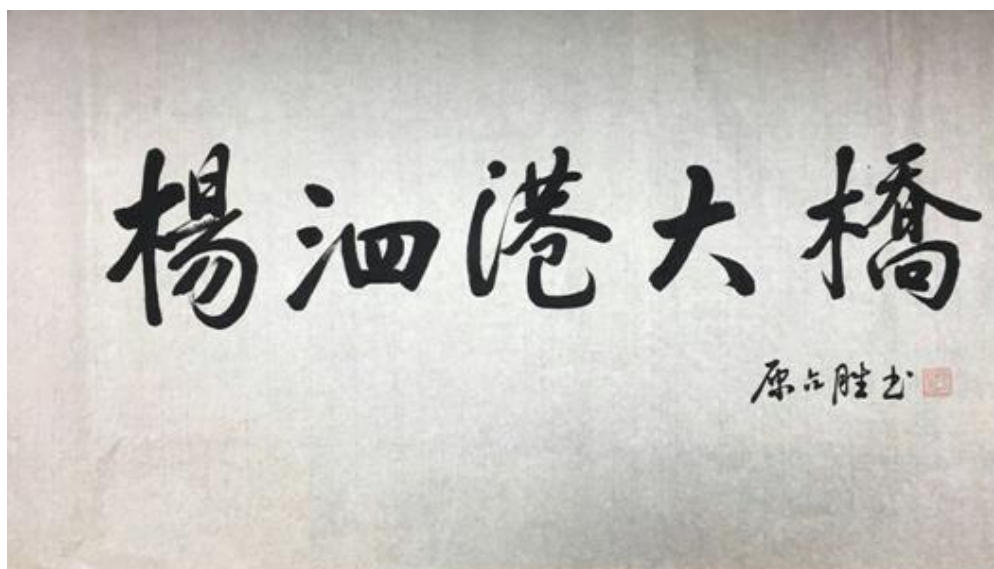 楊泗港大橋
原六胜书